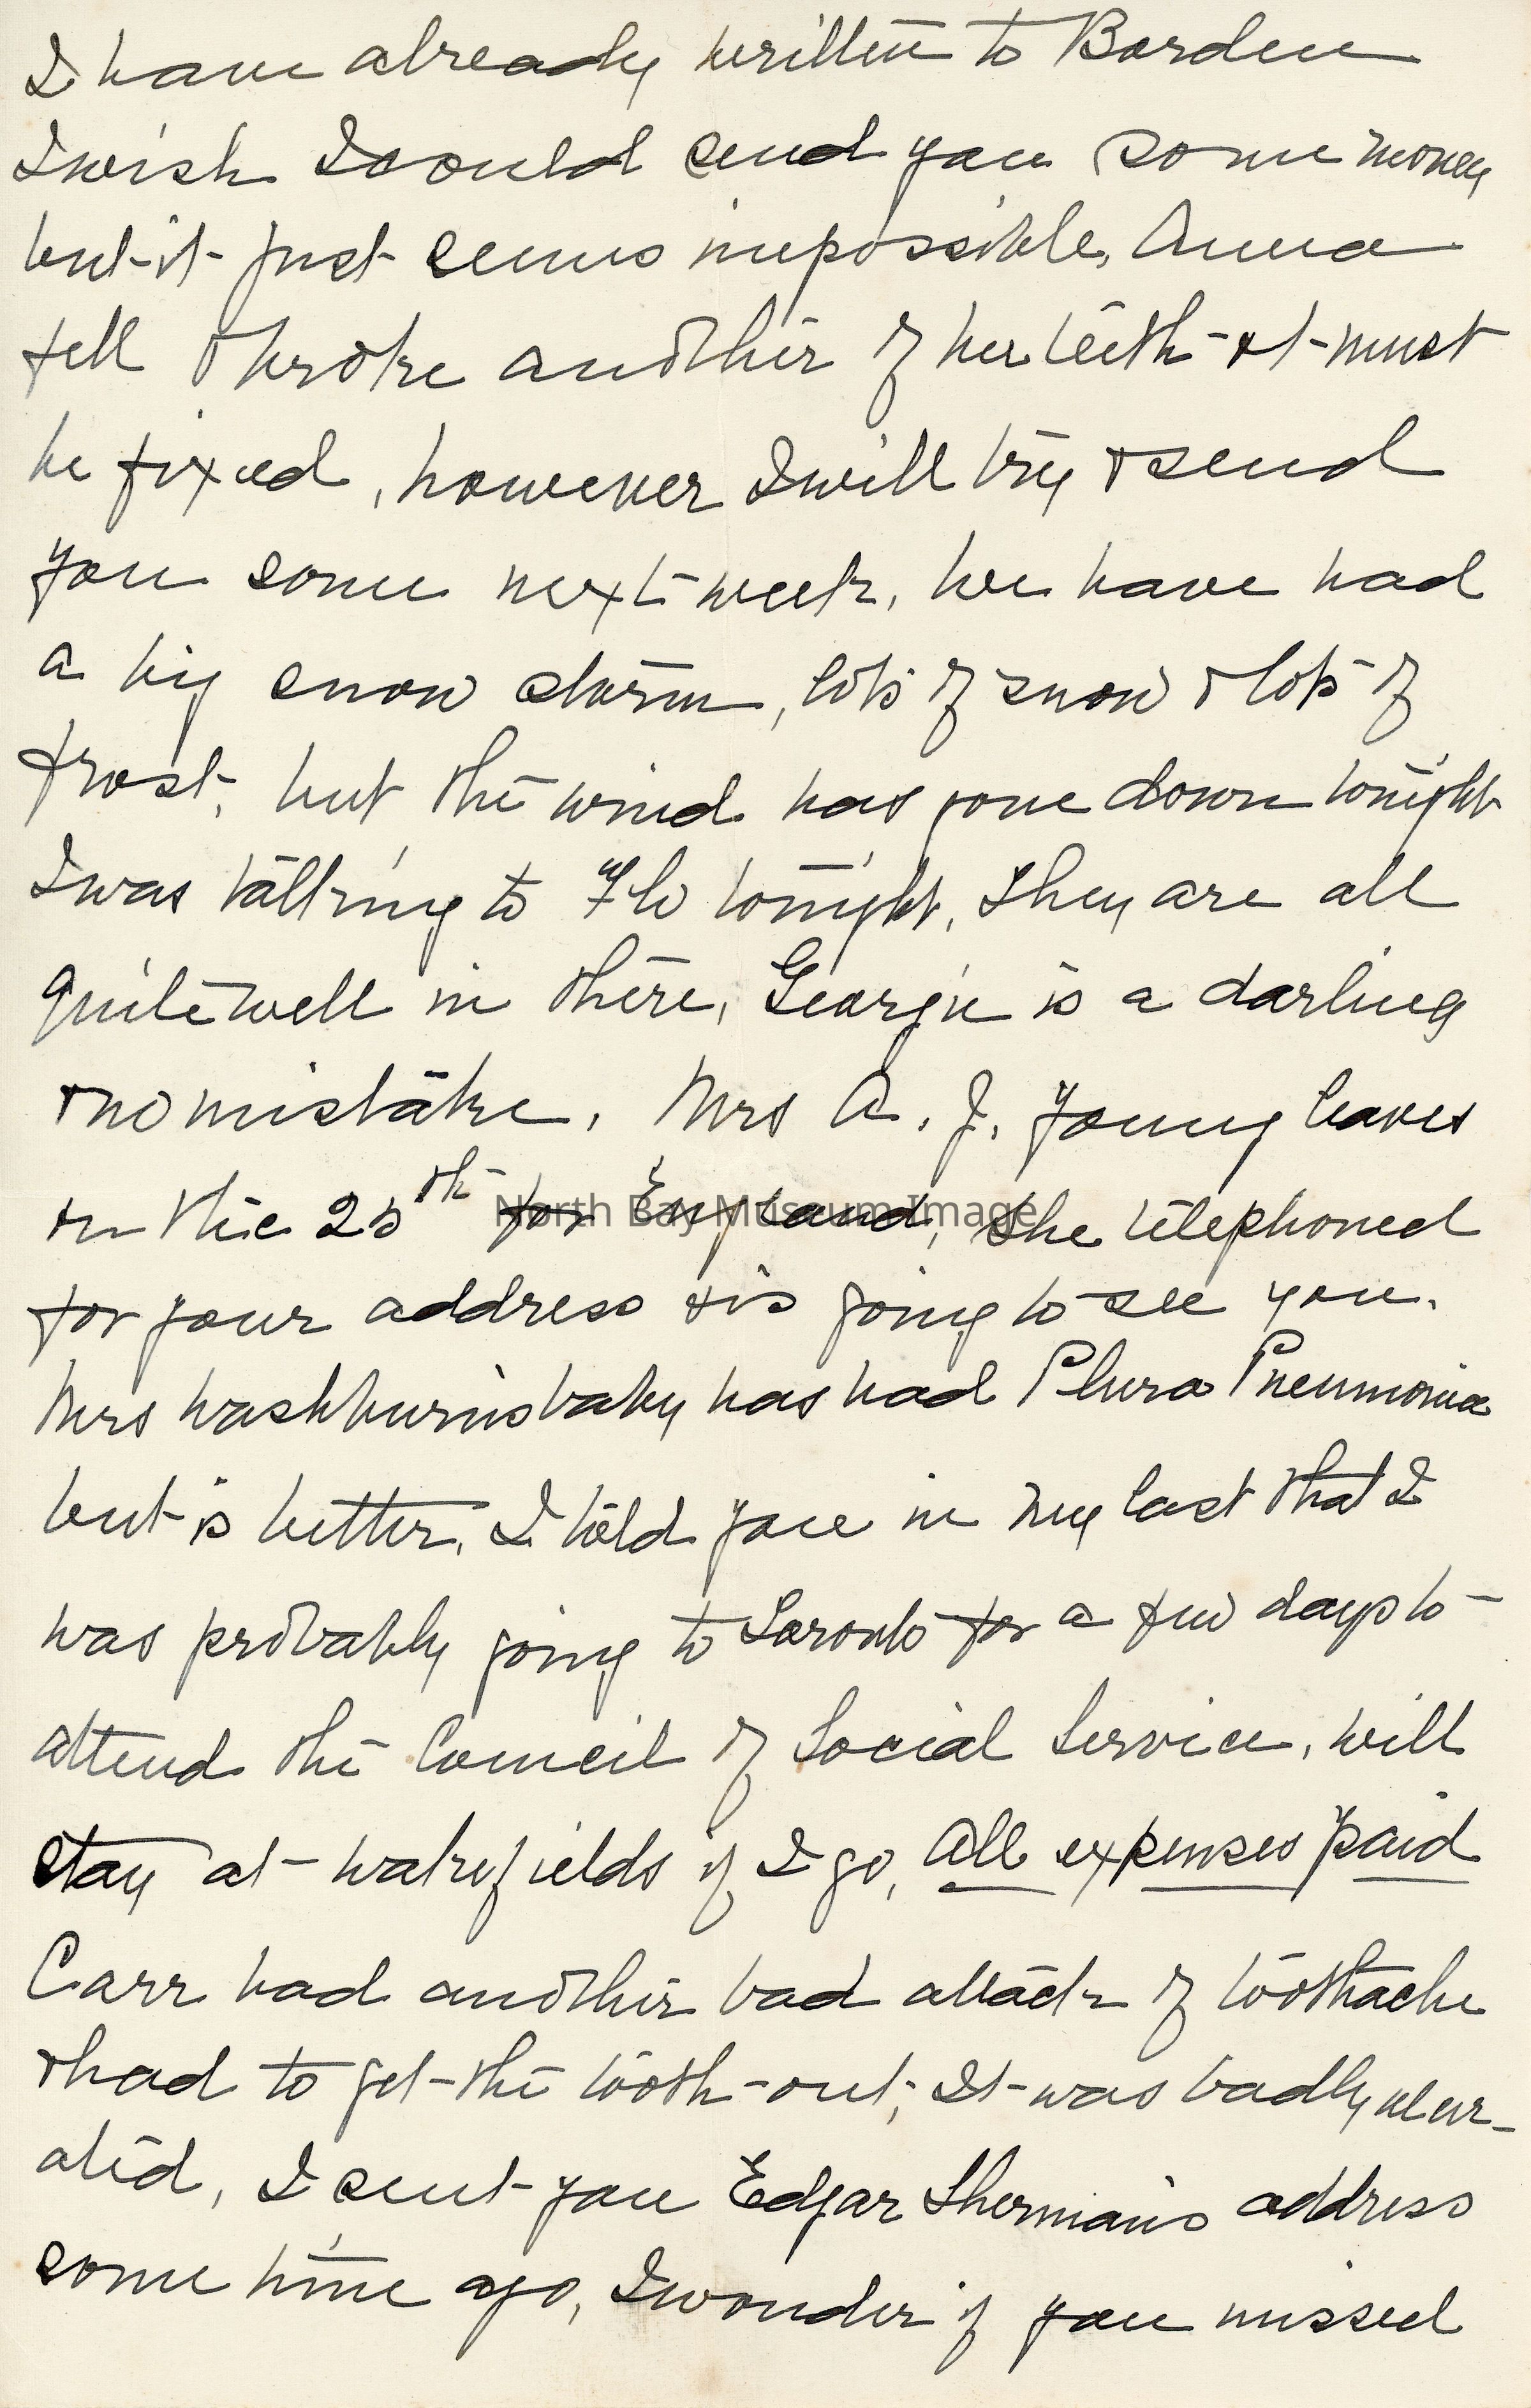 I have already written to Borden
I wish I could send you some money
but it just seems impossible, Anna
fell & broke another of her teeth & it must
be fixed, however I will try & send
you some next week, We have had
a big snow storm, lots of snow & lots of
frost, but the wind has gone down tonight
I was talking to Flo tonight, They are all
quite well in there, Georgie is a darling
& no mistake, Mrs A. J. Young leaves
on the 25th for England, She telephoned
North Bay Museum Image
for your address & is going to see you.
Mrs Washburns baby has had Plura Pneumonia
but is better, I told you in my last that I
was probably going to Toronto for a few days to
attend the Council of Social Service, will
stay at Wakefields if I go, All expenses paid
Carr had another bad attack of toothache
& had to get the tooth out, It was badly ulcer-
ated, I sent you Edgar Shermans address
some time ago, I wonder if you missed